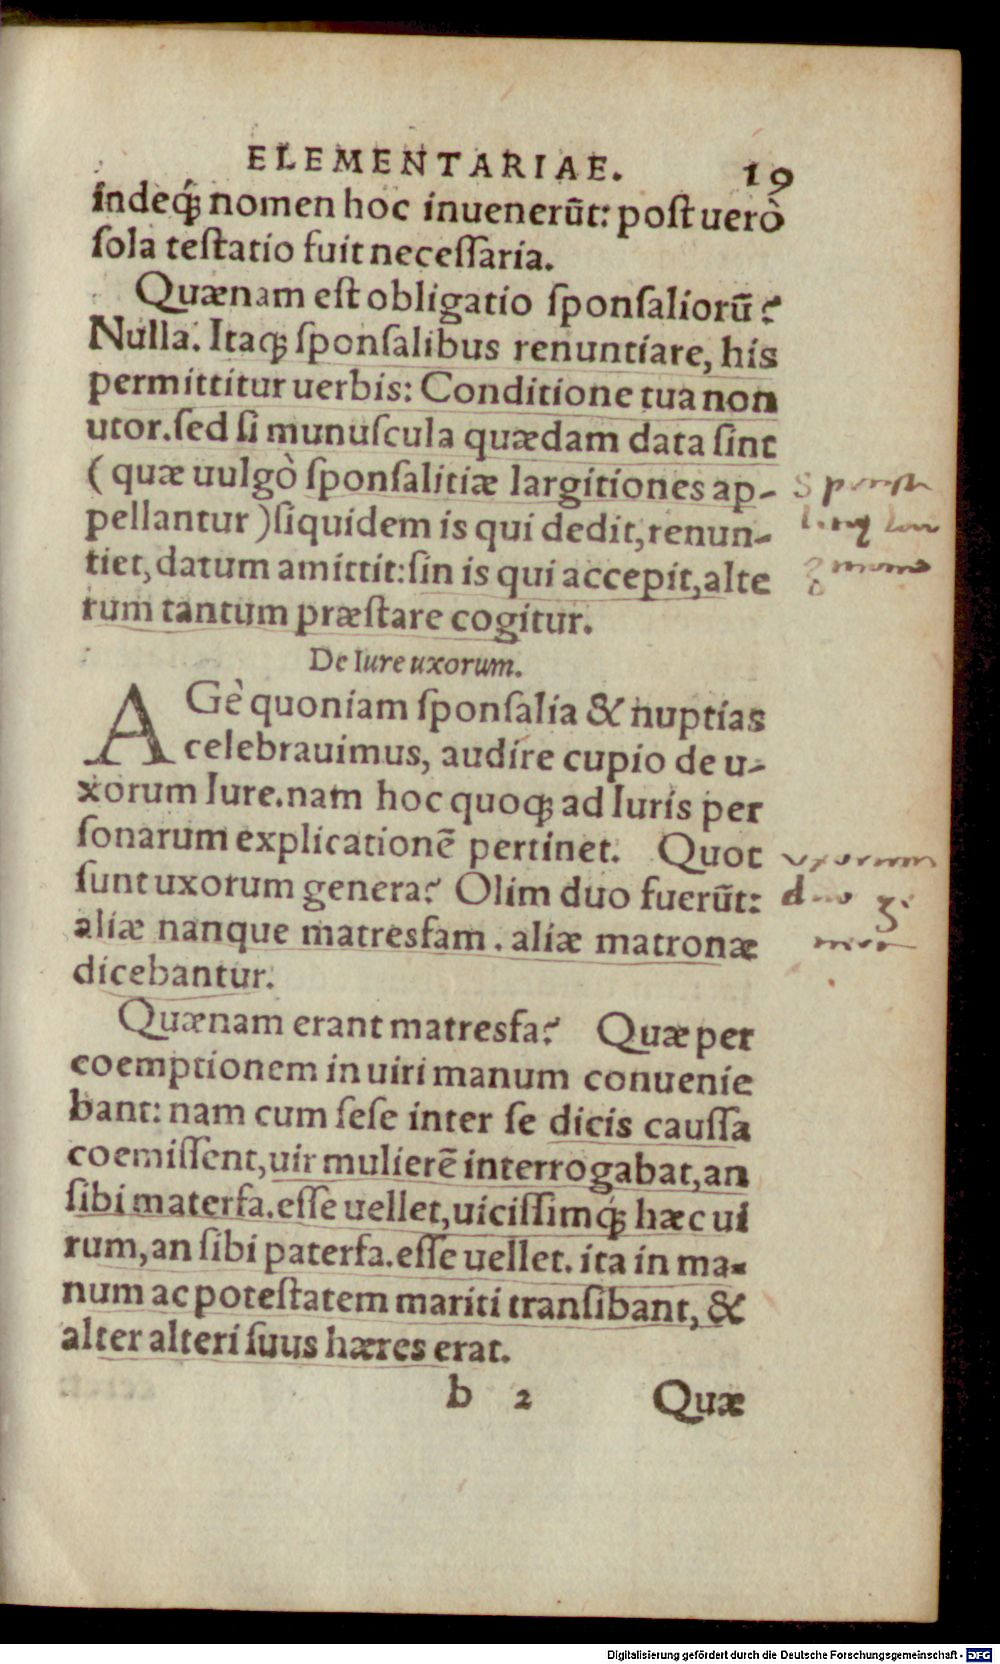 ELEMENTARIAE. 19
indeq́; nomen hoc inuenerũt: poſt uerò
ſola teſtatio fuit neceſſaria.
Quænam eſt obligatio ſponſaliorũ?
Nulla. Itaq; ſponſalibus renuntiare, his
permittitur uerbis: Conditione tua non
utor. ſed ſi munuſcula quædam data ſint
(quæ uulgò ſponſalitiæ largitiones ap-
pellantur) ſiquidem is qui dedit, renun-
tiet, datum amittit: ſin is qui accepit, alte
rum tantum præſtare cogitur.
De Iure uxorum.
AGè quoniam ſponſalia & nuptias
celebrauimus, audire cupio de u-
xorum Iure. nam hoc quoq; ad Iuris per
ſonarum explicationẽ pertinet. Quot
ſunt uxorum genera? Olim duo fuerũt:
aliæ nanque matresfam. aliæ matronæ
dicebantur.
Quænam erant matresfa? Quæ per
coemptionem in uiri manum conuenie
bant: nam cum ſeſe inter ſe dicis cauſſa
coemiſſent, uir mulierẽ interrogabat, an
ſibi materfa. eſſe uellet, uiciſſimq́; hæc ui
rum, an ſibi paterfa. eſſe uellet. ita in ma-
num ac poteſtatem mariti tranſibant, &
alter alteri ſuus hæres erat.
b 2 Quæ
uxorum
duo
Digitalisierung gefördert durch die Deutsche Forschungsgemeinschaft - DFG